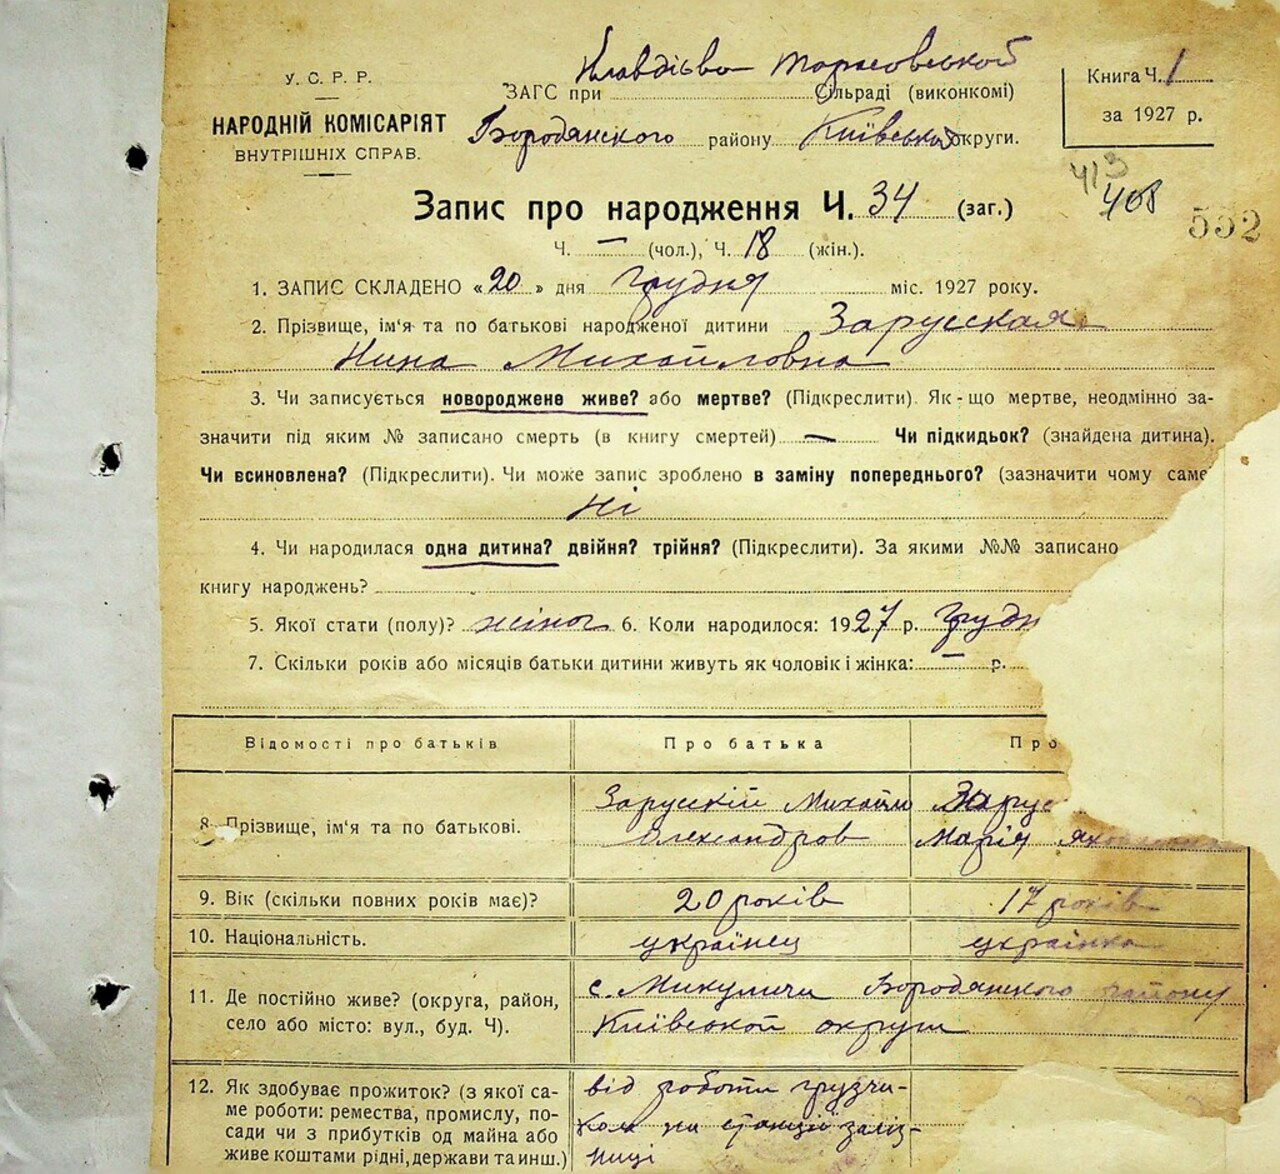 Клавдієво Тарасовській
У. С. Р. Р.
ЗАГС при Сільраді (виконкомі)
Книга Ч. 1
НАРОДНІЙ КОМІСАРІЯТ
Бородянського району Київської округи.
за 1927 р.
ВНУТРІШНІХ СПРАВ.
413
408
Запис про народження Ч. 34 (заг.)
552
Ч. — (чол.), Ч. 18 (жін.).
1. ЗАПИС СКЛАДЕНО «20» дня грудня міс. 1927 року.
2. Прізвище, ім'я та по батькові народженої дитини Зарусская
Нина Михайловна
3. Чи записується новороджене живе? або мертве? (Підкреслити). Як-що мертве, неодмінно за-
значити під яким № записано смерть (в книгу смертей) — Чи підкидьок? (знайдена дитина).
Чи всиновлена? (Підкреслити). Чи може запис зроблено в заміну попереднього? (зазначити чому саме
Ні
4. Чи народилася одна дитина? двійня? трійня? (Підкреслити). За якими №№ записано
книгу народжень?
5. Якої стати (полу)? жіноч 6. Коли народилося: 1927 р. грудн
7. Скільки років або місяців батьки дитини живуть як чоловік і жінка: — р.
Відомості про батьків
Про батька
Про
8. Прізвище, ім'я та по батькові.
Зарусскій Михайло
Олександров
Зарус
Марія
9. Вік (скільки повних років має)?
20 років
17 років
10. Національність.
українец
українка
11. Де постійно живе? (округа, район,
село або місто: вул., буд. Ч).
с. Микуличи Бородянського району
Київської округи
12. Як здобуває прожиток? (з якої са-
ме роботи: ремества, промислу, по-
сади чи з прибутків од майна або
живе коштами рідні, держави та инш.)
від роботи грузчи-
ком на станції заліз-
ниці